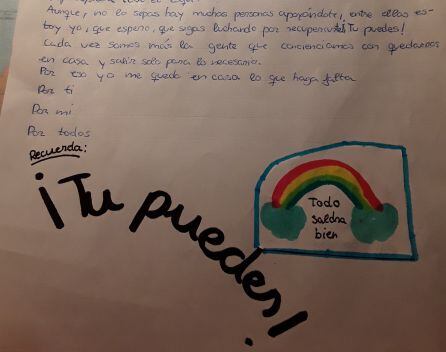 Aunque, no lo sepas hay muchas personas apoyándote, entre ellas es-
toy yo, que espero, que sigas luchando por recuperarte ¡Tu puedes!
Cada vez somos más la gente que concienciamos con quedarnos
en casa y salir solo para lo necesario.
Por eso yo me quedo en casa lo que haga falta
Por ti
Por mi
Por todos
Recuerda:
¡Tu puedes!
Todo
saldra
bien